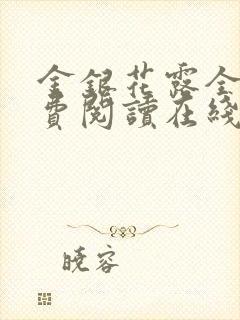 金銀花露全
費閱讀在綫
曉容